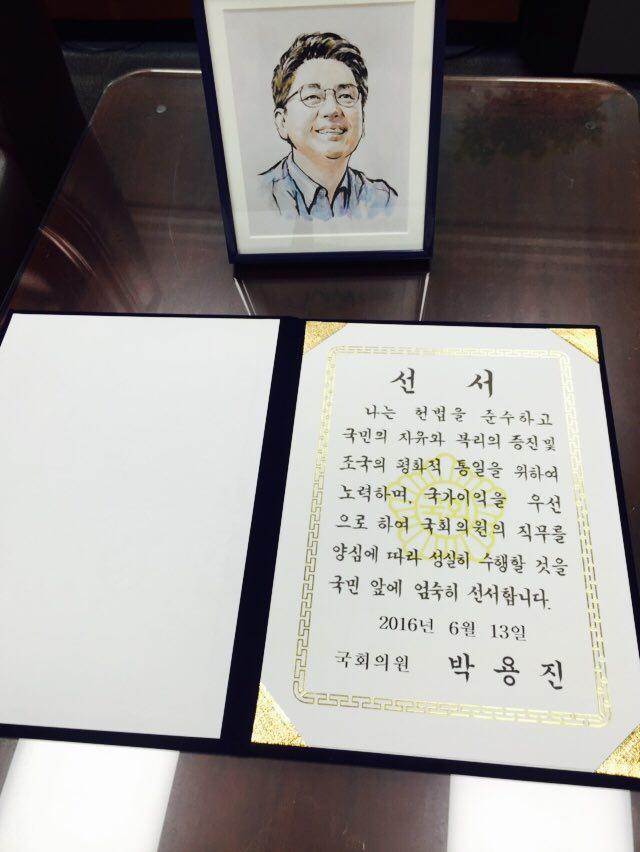 선 서
나는 헌법을 준수하고
국민의 자유와 복리의 증진 및
조국의 평화적 통일을 위하여
노력하며, 국가이익을 우선
으로 하여 국회의원의 직무를
양심에 따라 성실히 수행할 것을
국민 앞에 엄숙히 선서합니다.
2016년 6월 13일
국회의원 박용진